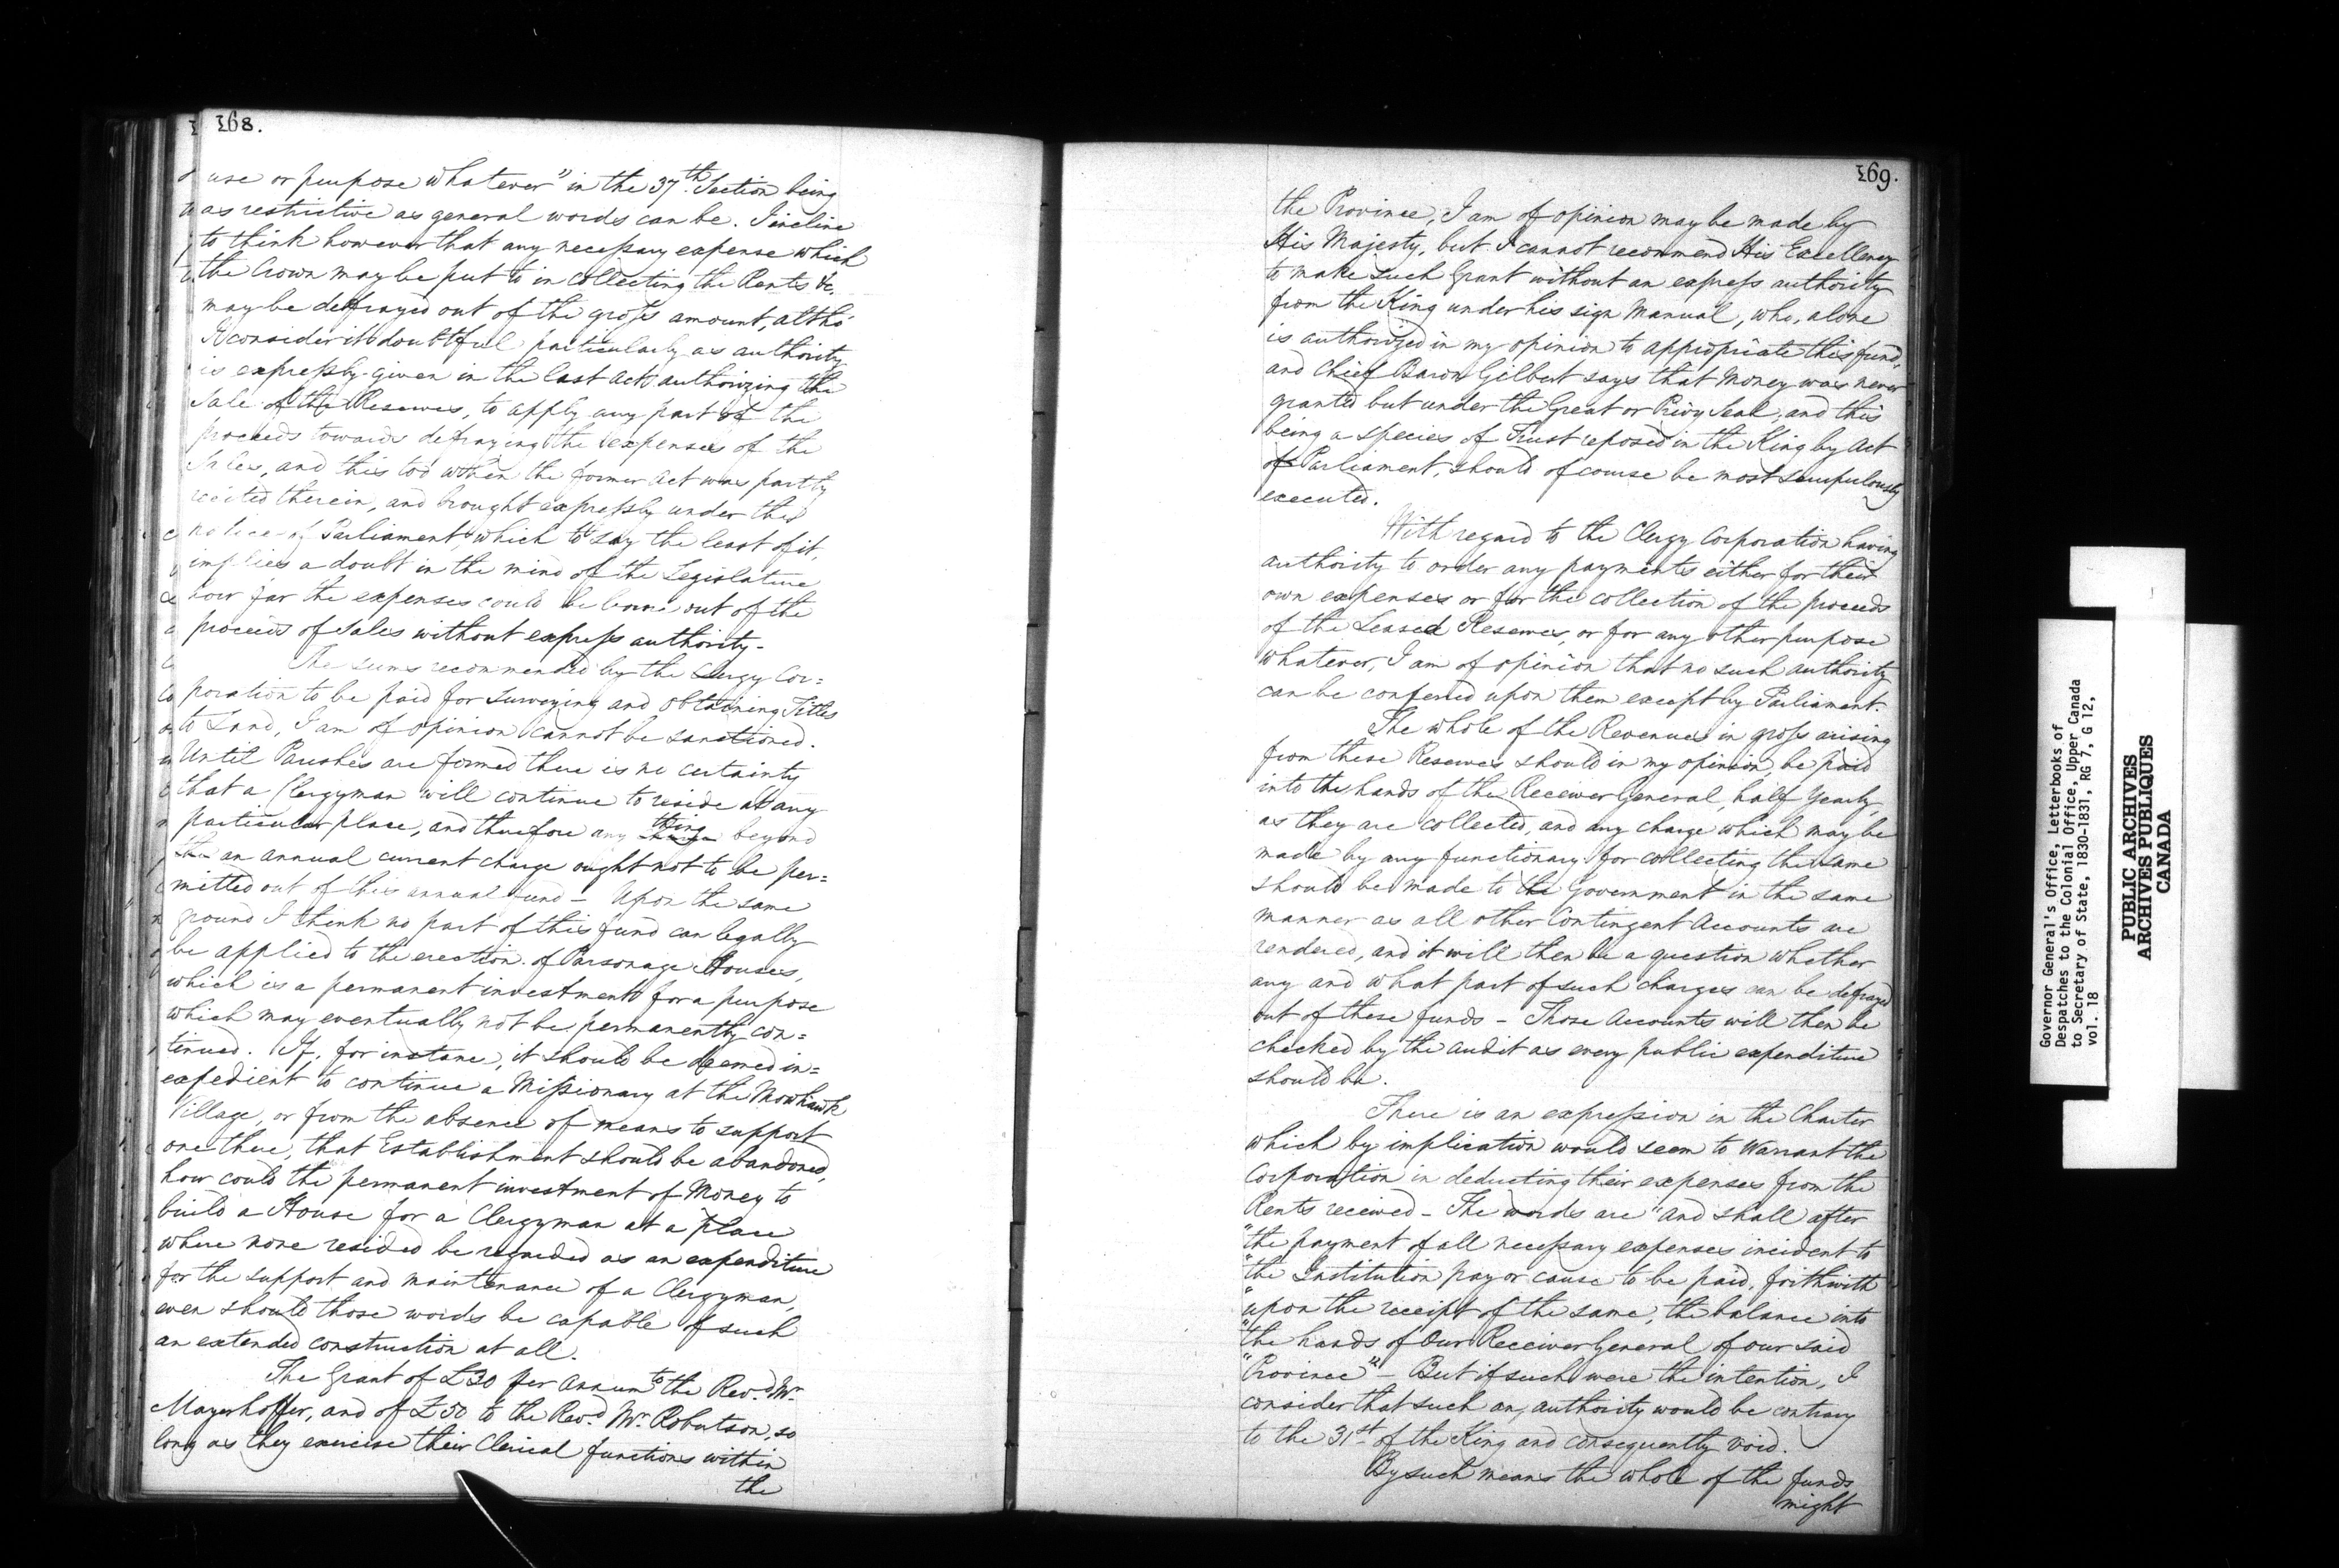 168.
use or purpose whatever" in the 37th Section being
as restrictive as general words can be. I incline
to think however that any necessary expense which
the Crown may be put to in collecting the Rents &c.
may be defrayed out of the gross amount, altho'
I consider it doubtful particularly as authority
is expressly given in the last Act authorizing the
Sale of the Reserves, to apply any part of the
proceeds towards defraying the expenses of the
Sales, and this too when the former Act was partly
recited therein, and brought expressly under the
notice of Parliament, which to say the least of it,
implies a doubt in the mind of the Legislature
how far the expenses could be borne out of the
proceeds of Sales without express authority.
The sums recommended by the Clergy Cor=
poration to be paid for surveying and obtaining Titles
to Land, I am of opinion cannot be sanctioned.
Until Parishes are formed there is no certainty
that a Clergyman will continue to reside at any
particular place, and therefore any thing beyond
an annual current charge ought not to be per=
mitted out of this annual fund – Upon the same
ground I think no part of this fund can legally
be applied to the erection of Parsonage Houses,
which is a permanent investment for a purpose
which may eventually not be permanently con=
tinued. If, for instance, it should be deemed in=
expedient to continue a Missionary at the Mowhawk
Village, or from the absence of means to support
one there, that Establishment should be abandoned,
how could the permanent investment of Money to
build a House for a Clergyman at a place
where none resided be regarded as an expenditure
for the support and maintenance of a Clergyman,
even should those words be capable of such
an extended construction at all.
The Grant of £30 per Annum to the Revd. Mr.
Mayerhoffer, and of £50 to the Revd. Mr. Robertson, so
long as they exercise their Clerical functions within
the
169.
the Province, I am of opinion may be made by
His Majesty, but I cannot recommend His Excellency
to make such Grant without an express authority
from the King under his sign Manual, who, alone
is authorized in my opinion to appropriate this fund,
and Chief Baron Gilbert says that Money was never
granted but under the Great or Privy Seal, and this
being a species of Trust reposed in the King by Act
of Parliament, should of course be most scrupulously
executed.
With regard to the Clergy Corporation having
authority to order any payments either for their
own expenses or for the collection of the proceeds
of the Leased Reserves, or for any other purpose
whatever, I am of opinion that no such authority
can be conferred upon them except by Parliament.
The whole of the Revenues in gross arising
from these Reserves should in my opinion, be paid
into the hands of the Receiver General, half Yearly,
as they are collected, and any charge which may be
made by any functionary for collecting the same
should be made to the Government in the same
manner as all other Contingent Accounts are
rendered, and it will then be a question whether
any and what part of such charges can be defrayed
out of these funds – Those Accounts will then be
checked by the audit as every public expenditure
should be.
There is an expression in the Charter
which by implication would seem to Warrant the
Corporation in deducting their expenses from the
Rents received – The words are "and shall after
"the payment of all necessary expenses incident to
"the Institution pay or cause to be paid, forthwith
"upon the receipt of the same, the balance into
"the hands of Our Receiver General of our said
"Province" – But if such were the intention, I
consider that such an authority would be contrary
to the 31st of the King and consequently void.
By such means the whole of the funds
might
Governor General's Office, Letterbooks of
Despatches to the Colonial Office, Upper Canada
to Secretary of State, 1830-1831, RG 7, G 12,
vol. 18
PUBLIC ARCHIVES
ARCHIVES PUBLIQUES
CANADA